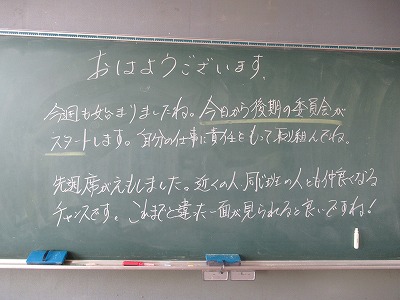 おはようございます。
今週も始まりましたね。今日から後期の委員会が
スタートします。自分の仕事に責任をもって取り組んでね。
先週席がえもしました。近くの人、同じ班の人とも仲良くなる
チャンスです。これまでと違った一面が見られると良いですね！